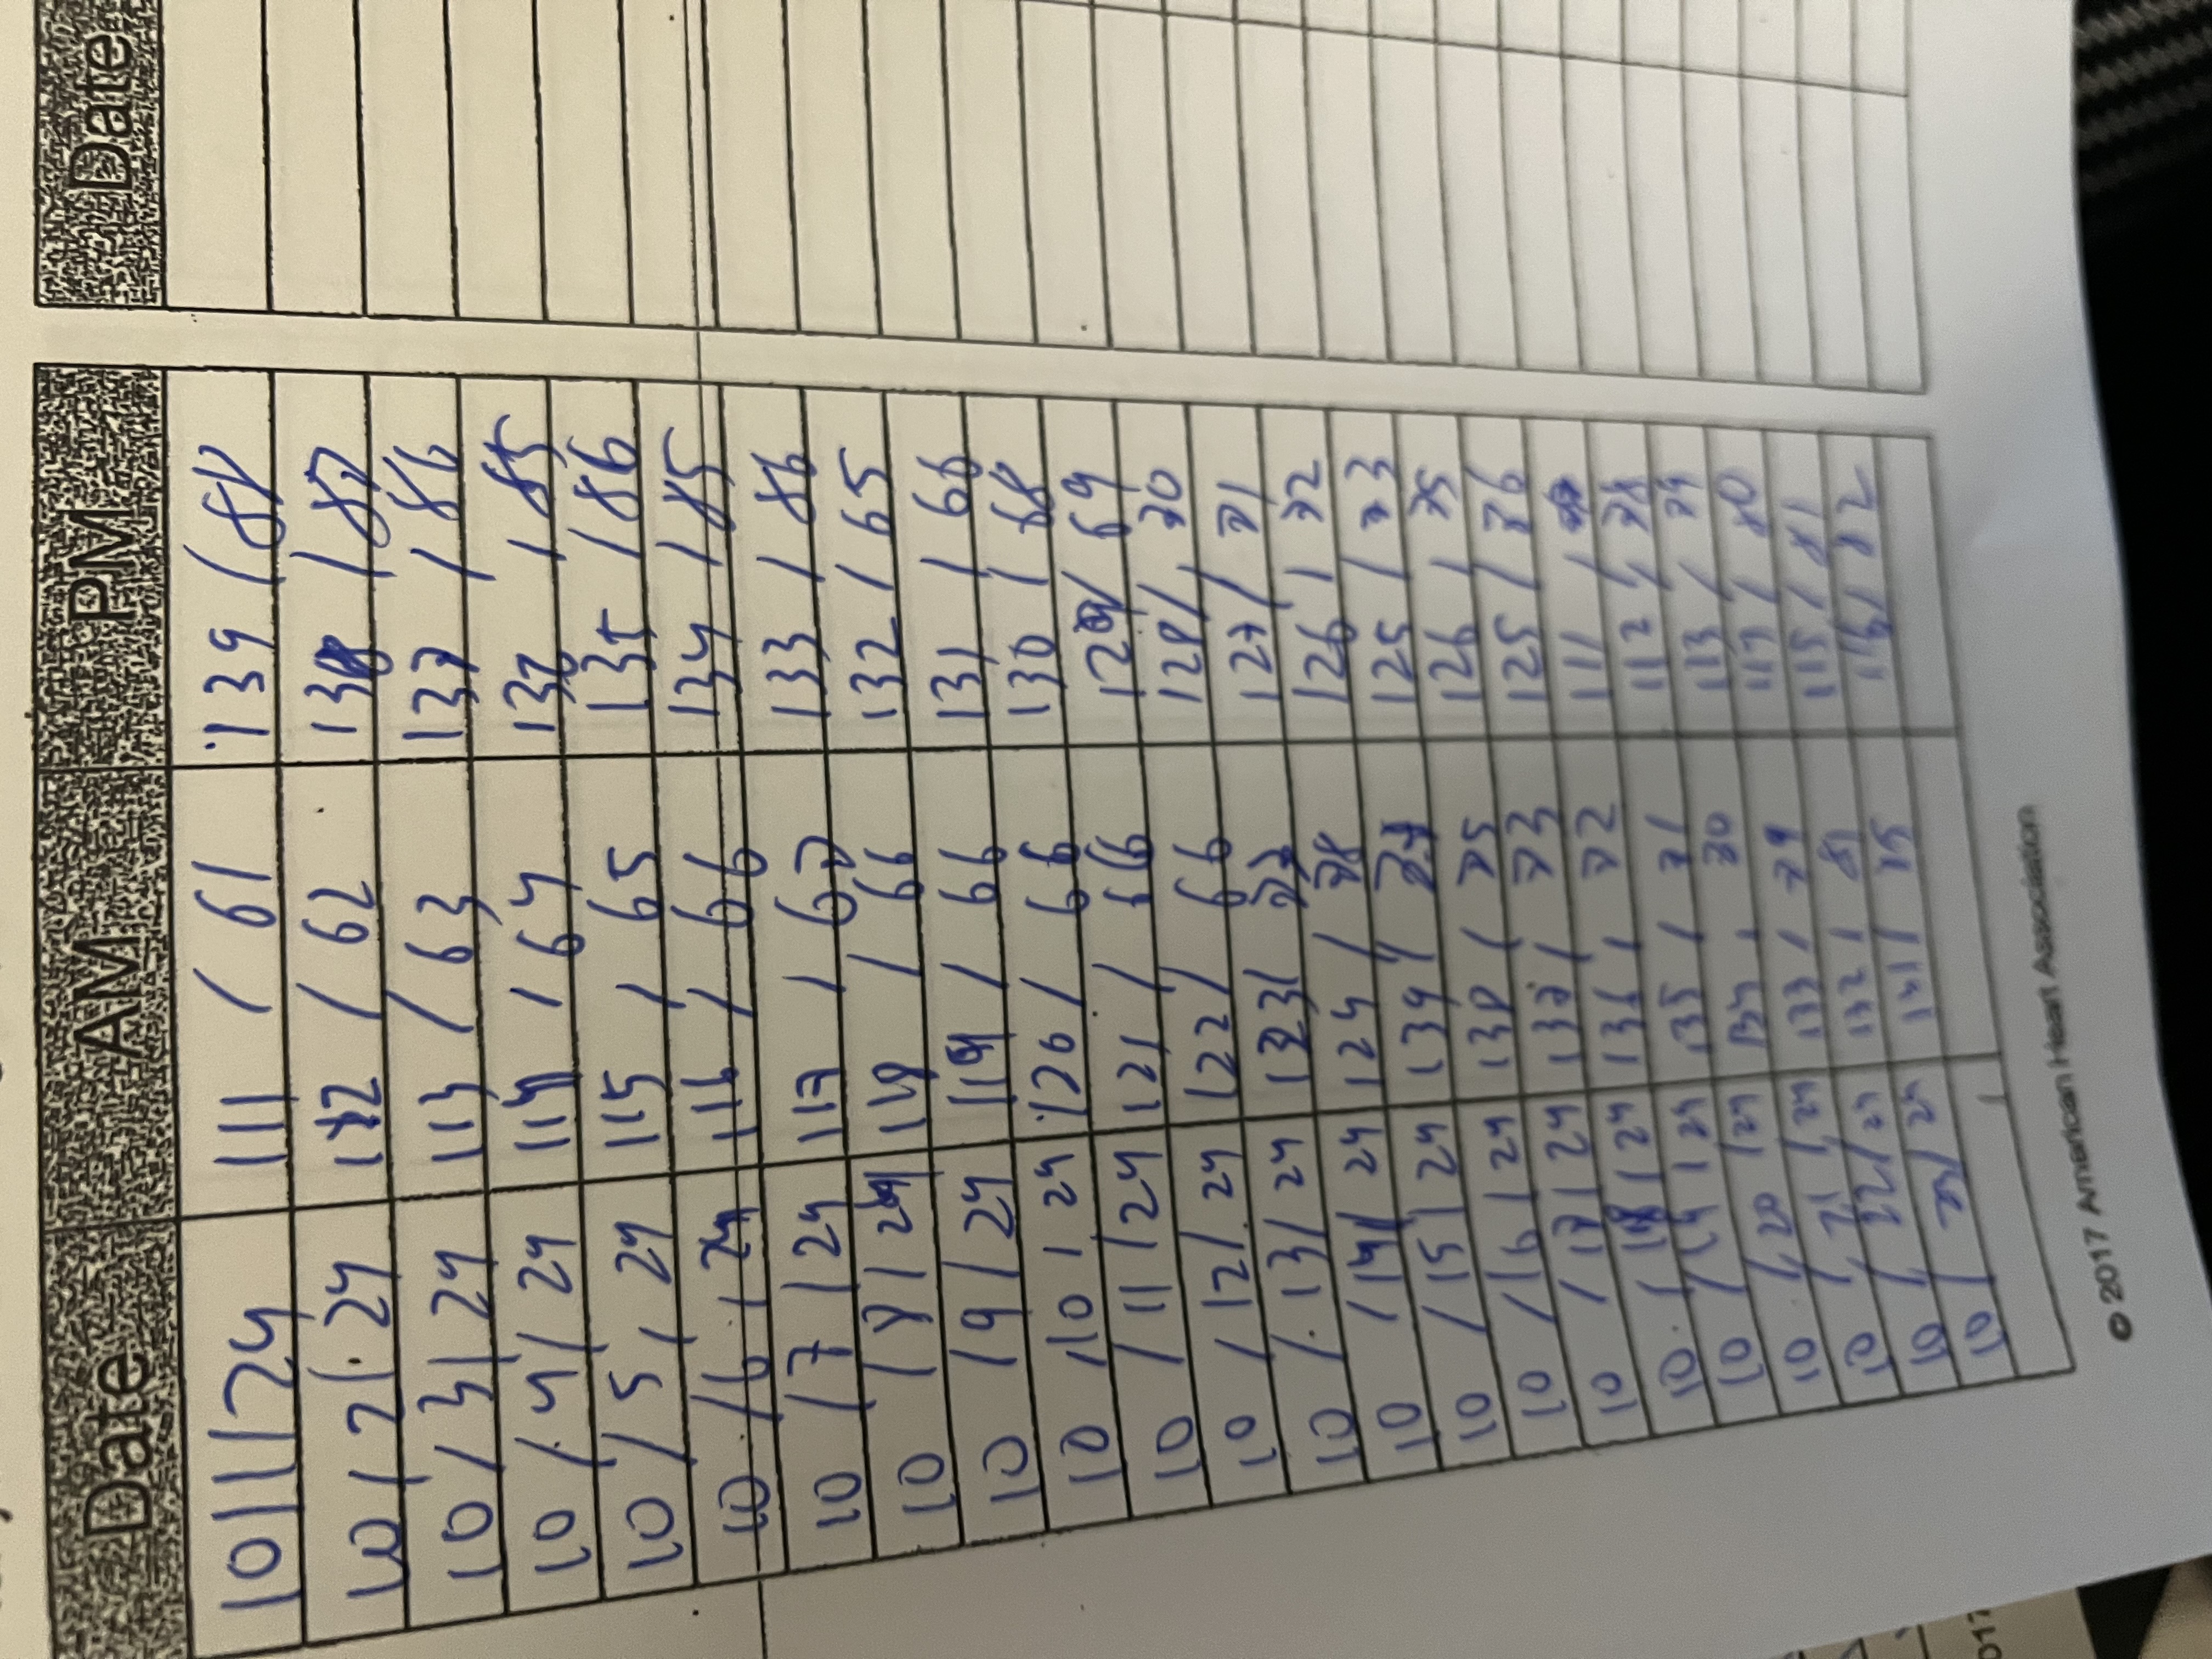 Date AM PM Date
10/1/24 111 / 61 139 / 88
10/2/24 112 / 62 138 / 87
10/3/24 113 / 63 137 / 86
10/4/24 114 / 64 132 / 85
10/5/24 115 / 65 135 / 86
10/6/24 116 / 66 134 / 85
10/7/24 117 / 67 133 / 86
10/8/24 118 / 66 132 / 65
10/9/24 119 / 66 131 / 66
10/10/24 120 / 66 130 / 68
10/11/24 121 / 66 129 / 69
10/12/24 122 / 66 128 / 70
10/13/24 123 / 77 127 / 71
10/14/24 124 / 78 126 / 72
10/15/24 139 / 125 / 73
10/16/24 138 / 75 126 / 75
10/17/24 137 / 73 125 / 76
10/18/24 136 / 72 111 /
10/19/24 135 / 71 112 / 78
10/20/24 134 / 70 113 / 79
10/21/24 133 / 79 117 / 80
10/22/24 132 / 81 115 / 81
10/23/24 131 / 116 / 82
© 2017 American Heart Association